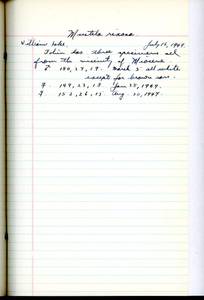 Mustela rixosa
William Lake, July 15, 1949.
Tobin has three specimens all
from the vicinity of Miocene
♂ 180, 27, 19. March 5 all white
except for brown ears.
♀ 149, 23, 18 Jan 28, 1949.
♀ 153, 26, 13 Aug. 20, 1947